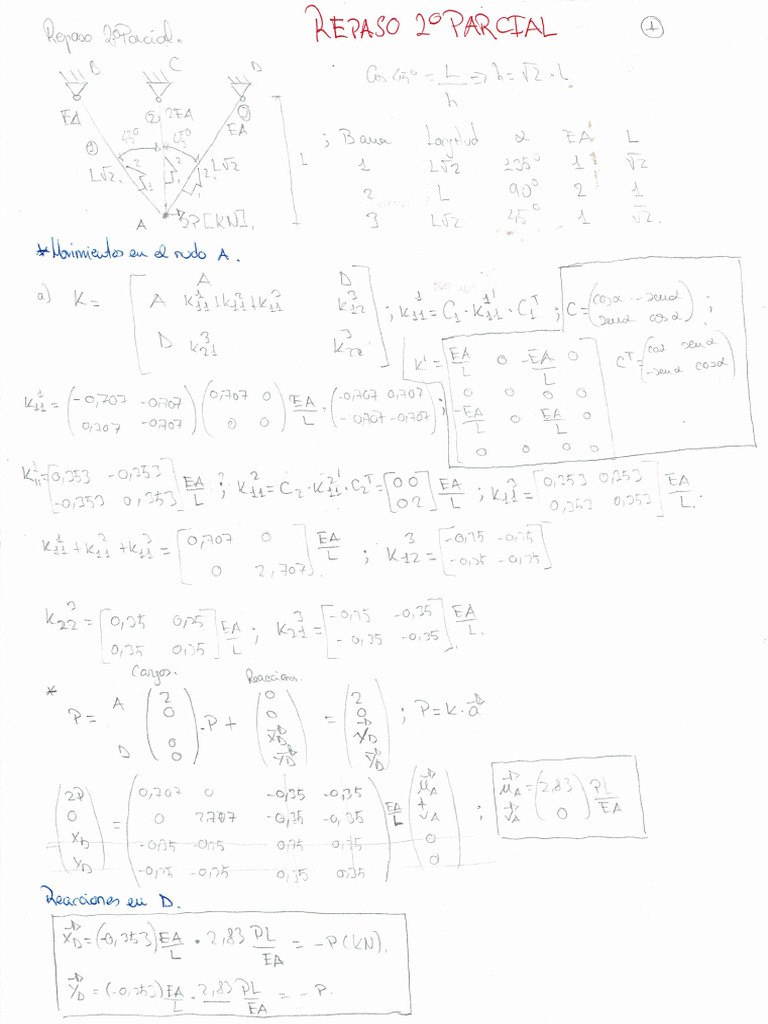 Repaso 2º Parcial.
REPASO 2º PARCIAL
1
B C D
EA 2EA EA
45º 45º
L√2 L√2 L
A 2P[KN].
Cos 45º = L/h => h = √2 · L
; Barra Longitud α EA L
1 L√2 135º 1 √2
2 L 90º 2 1
3 L√2 45º 1 √2.
* Movimientos en el nudo A.
a) K = [ A D
A K₁₁¹+K₁₁²+K₁₁³ K₁₂³
D K₂₁³ K₂₂³ ] ; K₁₁¹ = C₁ · K₁₁¹' · C₁ᵀ ; C = (cosα -senα
senα cosα) ;
K' = EA/L 0 -EA/L 0
0 0 0 0
-EA/L 0 EA/L 0
0 0 0 0
Cᵀ = (cosα senα
-senα cosα)
K₁₁¹ = (-0,707 -0,707
0,707 -0,707) (0,707 0
0 0) EA/L · (-0,707 0,707
-0,707 -0,707) ;
K₁₁¹ = [0,353 -0,353
-0,353 0,353] EA/L ; K₁₁² = C₂ · K₁₁²' · C₂ᵀ = [0 0
0 2] EA/L ; K₁₁³ = [0,353 0,353
0,353 0,353] EA/L.
K₁₁¹ + K₁₁² + K₁₁³ = [0,707 0
0 2,707] EA/L ; K₁₂³ = [-0,35 -0,35
-0,35 -0,35]
K₂₂³ = [0,35 0,35
0,35 0,35] EA/L ; K₂₁³ = [-0,35 -0,35
-0,35 -0,35] EA/L.
Cargas. Reacciones.
* P = A D (2
0
0
0) · P + (0
0
X_D
Y_D) = (2
0
X_D
Y_D) ; P = K · a
(2P
0
X_D
Y_D) = (0,707 0 -0,35 -0,35
0 2,707 -0,35 -0,35
-0,35 -0,35 0,35 0,35
-0,35 -0,35 0,35 0,35) EA/L (μ_A
v_A
0
0) ; μ_A
v_A = (2,83
0) PL/EA
Reacciones en D.
X_D = (-0,353) EA/L · 2,83 PL/EA = -P (KN).
Y_D = (-0,353) EA/L · 2,83 PL/EA = -P.